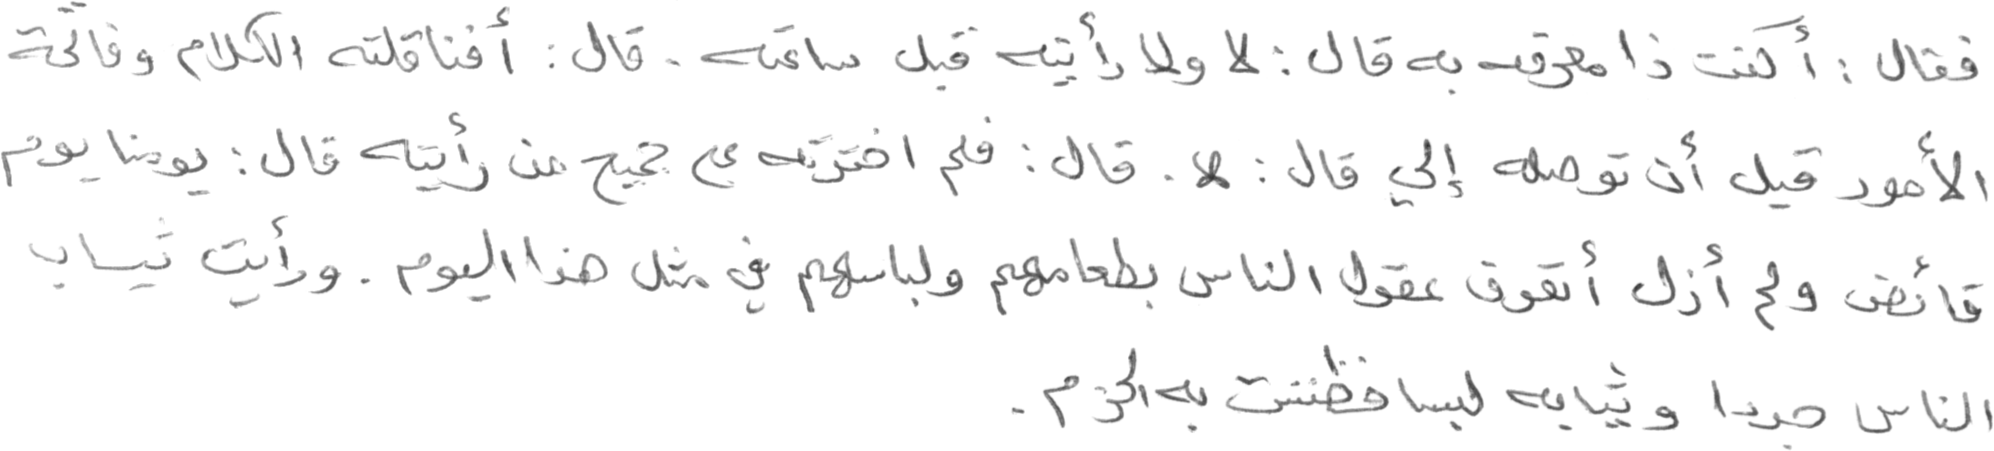 فقال : أكنت ذا معرفة به قال : لا ولا رأيته قبل ساعته . قال : أفناقلته الكلام وفاتحته
الأمور قبل أن توصله إلي قال : لا . قال : فلم اخترته على جميع من رأيته قال : يومنا يوم
قائض ولم أزل أتقوف عقول الناس بطعامهم ولباسهم في مثل هذا اليوم . ورأيت ثياب
الناس جددا وثيابه لبسا فظننت به الحزم .